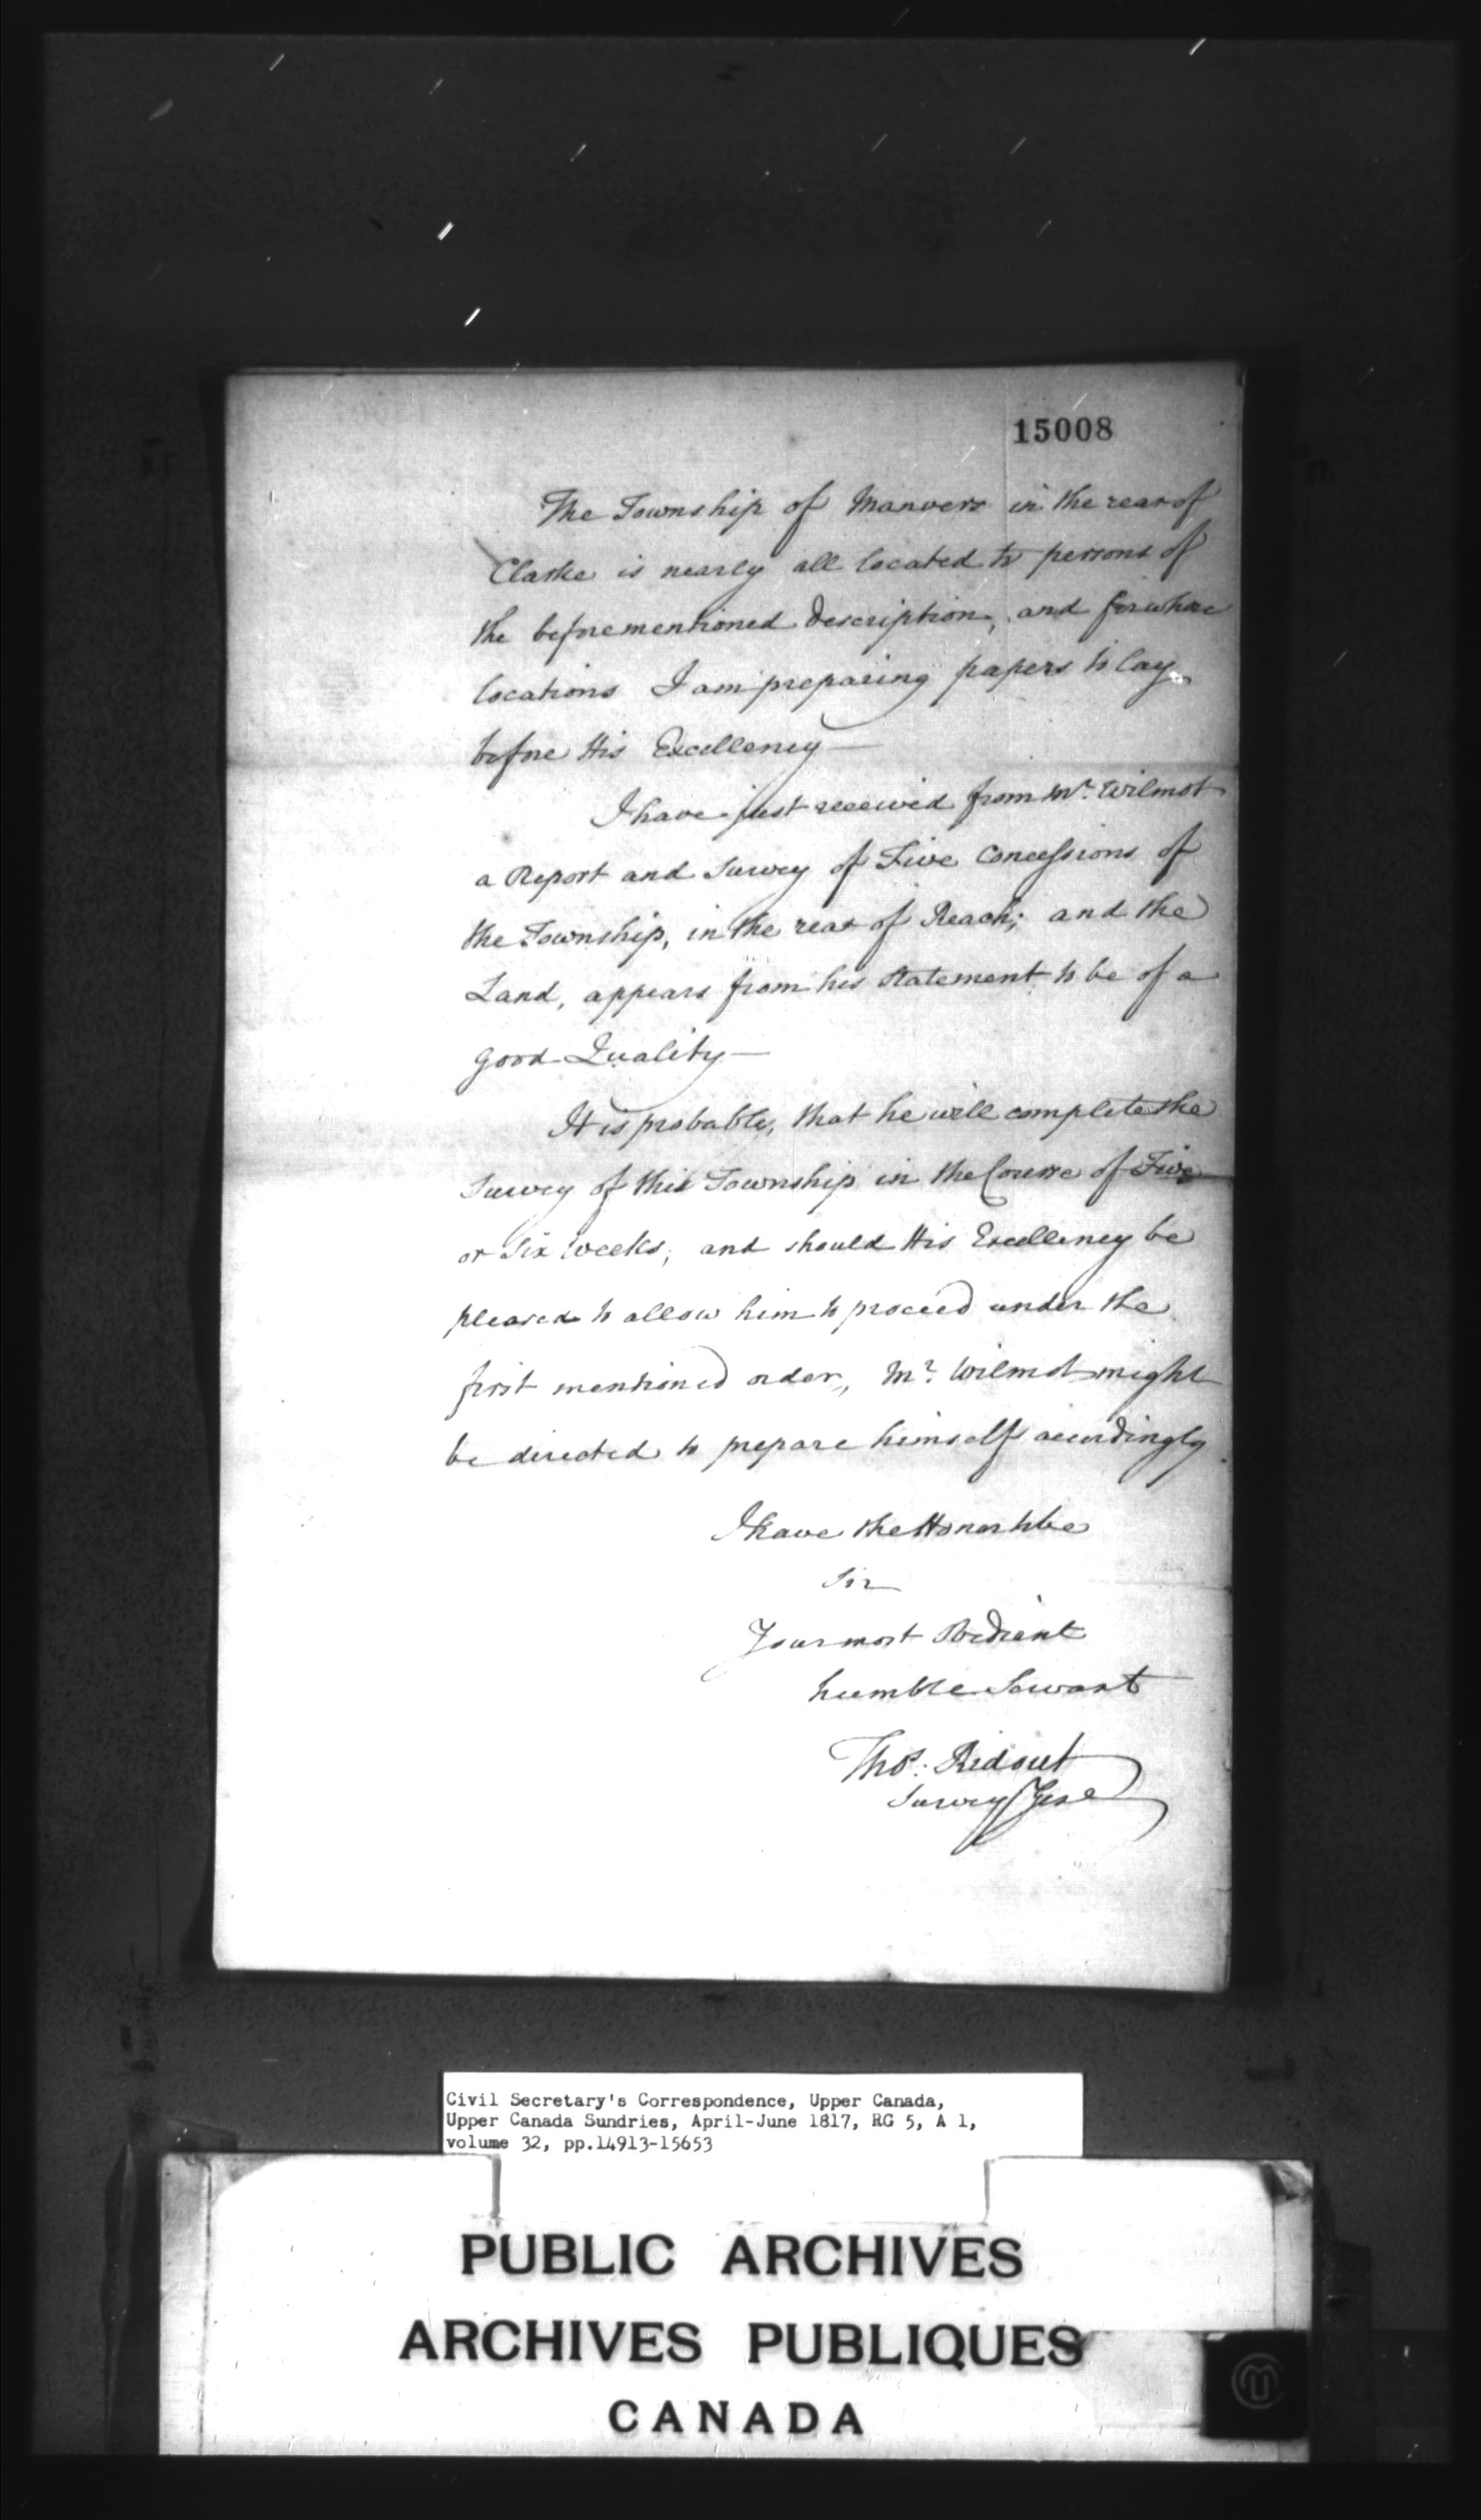 15008
The Township of Manvers in the rear of
Clarke is nearly all located to persons of
the beforementioned Description, and for whose
locations I am preparing papers to lay
before His Excellency—
I have just received from Mr. Wilmot
a Report and Survey of Five Concessions of
the Township, in the rear of Reach; and the
Land, appears from his Statement to be of a
good Quality—
It is probable, that he will complete the
Survey of this Township in the Course of Five
or Six Weeks; and should His Excellency be
pleased to allow him to proceed under the
first mentioned order, Mr. Wilmot might
be directed to prepare himself accordingly
I have the Honor to be
Sir
Your most Obedient
humble Servant
Thos: Ridout
Survey Genl
Civil Secretary's Correspondence, Upper Canada,
Upper Canada Sundries, April-June 1817, RG 5, A 1,
volume 32, pp.14913-15653
PUBLIC ARCHIVES
ARCHIVES PUBLIQUES
CANADA